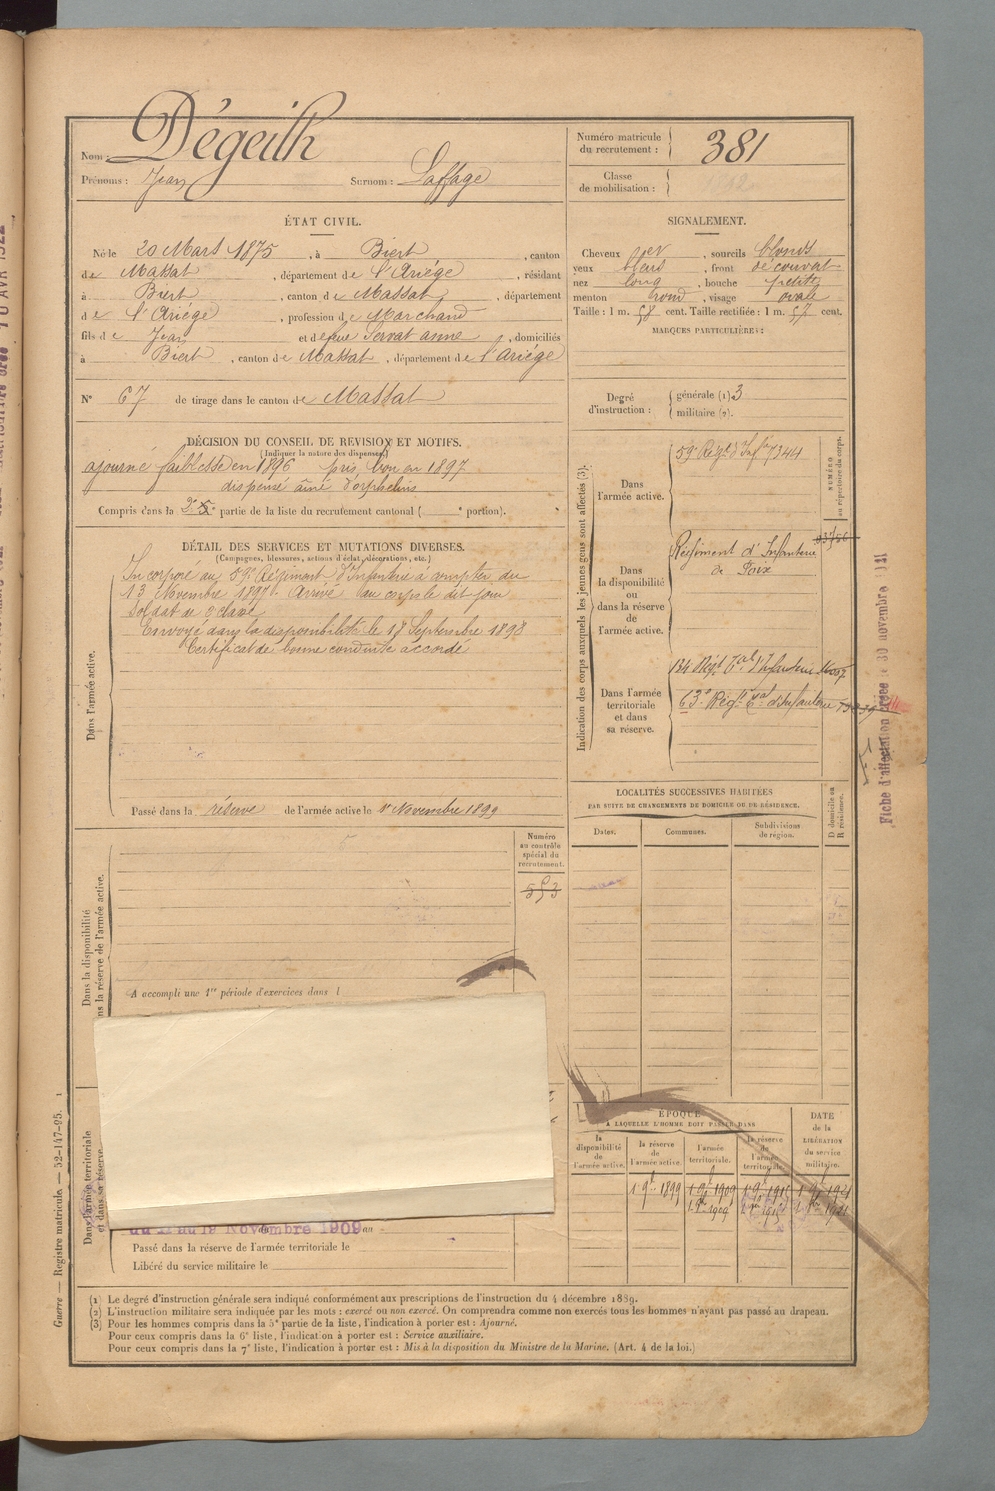 Nom : Dégeilh
Prénoms : Jean Surnom : Laffage
Numéro matricule
du recrutement : 381
Classe
de mobilisation :
ÉTAT CIVIL.
Né le 20 Mars 1875, à Biert, canton
de Massat, département de l'Ariége, résidant
à Biert, canton de Massat, département
de l'Ariége, profession de Marchand
fils de Jean et de feue Servat anne, domiciliés
à Biert, canton de Massat, département de l'Ariége
N° 67 de tirage dans le canton de Massat
SIGNALEMENT.
Cheveux et, sourcils blonds
yeux bleus, front découvert
nez long, bouche petite
menton rond, visage ovale
Taille : 1 m. 58 cent. Taille rectifiée : 1 m. 57 cent.
MARQUES PARTICULIÈRES :
Degré
d'instruction :
générale (1) 3
militaire (2).
DÉCISION DU CONSEIL DE REVISION ET MOTIFS.
(Indiquer la nature des dispenses.)
ajourné faiblesse en 1896 pris bon en 1897
dispensé aîné d'orphelins
Compris dans la 2e partie de la liste du recrutement cantonal ( portion).
DÉTAIL DES SERVICES ET MUTATIONS DIVERSES.
(Campagnes, blessures, actions d'éclat, décorations, etc.)
Dans l'armée active.
Incorporé au 59e Régiment d'Infanterie à compter du
13 Novembre 1897. Arrivé au corps le dit jour
Soldat de 2e classe
Envoyé dans la disponibilité le 18 Septembre 1898
Certificat de bonne conduite accordé
Passé dans la réserve de l'armée active le 1er Novembre 1899
Indication des corps auxquels les jeunes gens sont affectés (3).
NUMÉRO
au répertoire du corps.
Dans
l'armée active.
59e Régt d'Infie 7344
Dans
la disponibilité
ou
dans la réserve
de
l'armée active.
Régiment d'Infanterie
de Foix
Dans l'armée
territoriale
et dans
sa réserve.
134 Régt Tal d'Infanterie
63e Régt Tal d'Infanterie
LOCALITÉS SUCCESSIVES HABITÉES
PAR SUITE DE CHANGEMENTS DE DOMICILE OU DE RÉSIDENCE.
Dates.
Communes.
Subdivisions
de région.
D domicile ou
R résidence.
Fiche d'affectation créée le 30 novembre 1921
Dans la disponibilité
Dans la réserve de l'armée active.
Numéro
au contrôle
spécial du
recrutement.
553
A accompli une 1re période d'exercices dans l
Dans l'armée territoriale
et dans sa réserve.
du 11 au 19 Novembre 1909
Passé dans la réserve de l'armée territoriale le
Libéré du service militaire le
ÉPOQUE
A LAQUELLE L'HOMME DOIT PASSER DANS
la
disponibilité
de
l'armée active.
la réserve
de
l'armée active.
l'armée
territoriale.
la réserve
de
l'armée
territoriale.
DATE
de la
LIBÉRATION
du service
militaire.
1 9bre 1899 1 9bre 1909 1 9bre 1915 1 9bre 1921
(1) Le degré d'instruction générale sera indiqué conformément aux prescriptions de l'instruction du 4 décembre 1889.
(2) L'instruction militaire sera indiquée par les mots : exercé ou non exercé. On comprendra comme non exercés tous les hommes n'ayant pas passé au drapeau.
(3) Pour les hommes compris dans la 5e partie de la liste, l'indication à porter est : Ajourné.
Pour ceux compris dans la 6e liste, l'indication à porter est : Service auxiliaire.
Pour ceux compris dans la 7e liste, l'indication à porter est : Mis à la disposition du Ministre de la Marine. (Art. 4 de la loi.)
Guerre — Registre matricule. — 52-147-95. 1